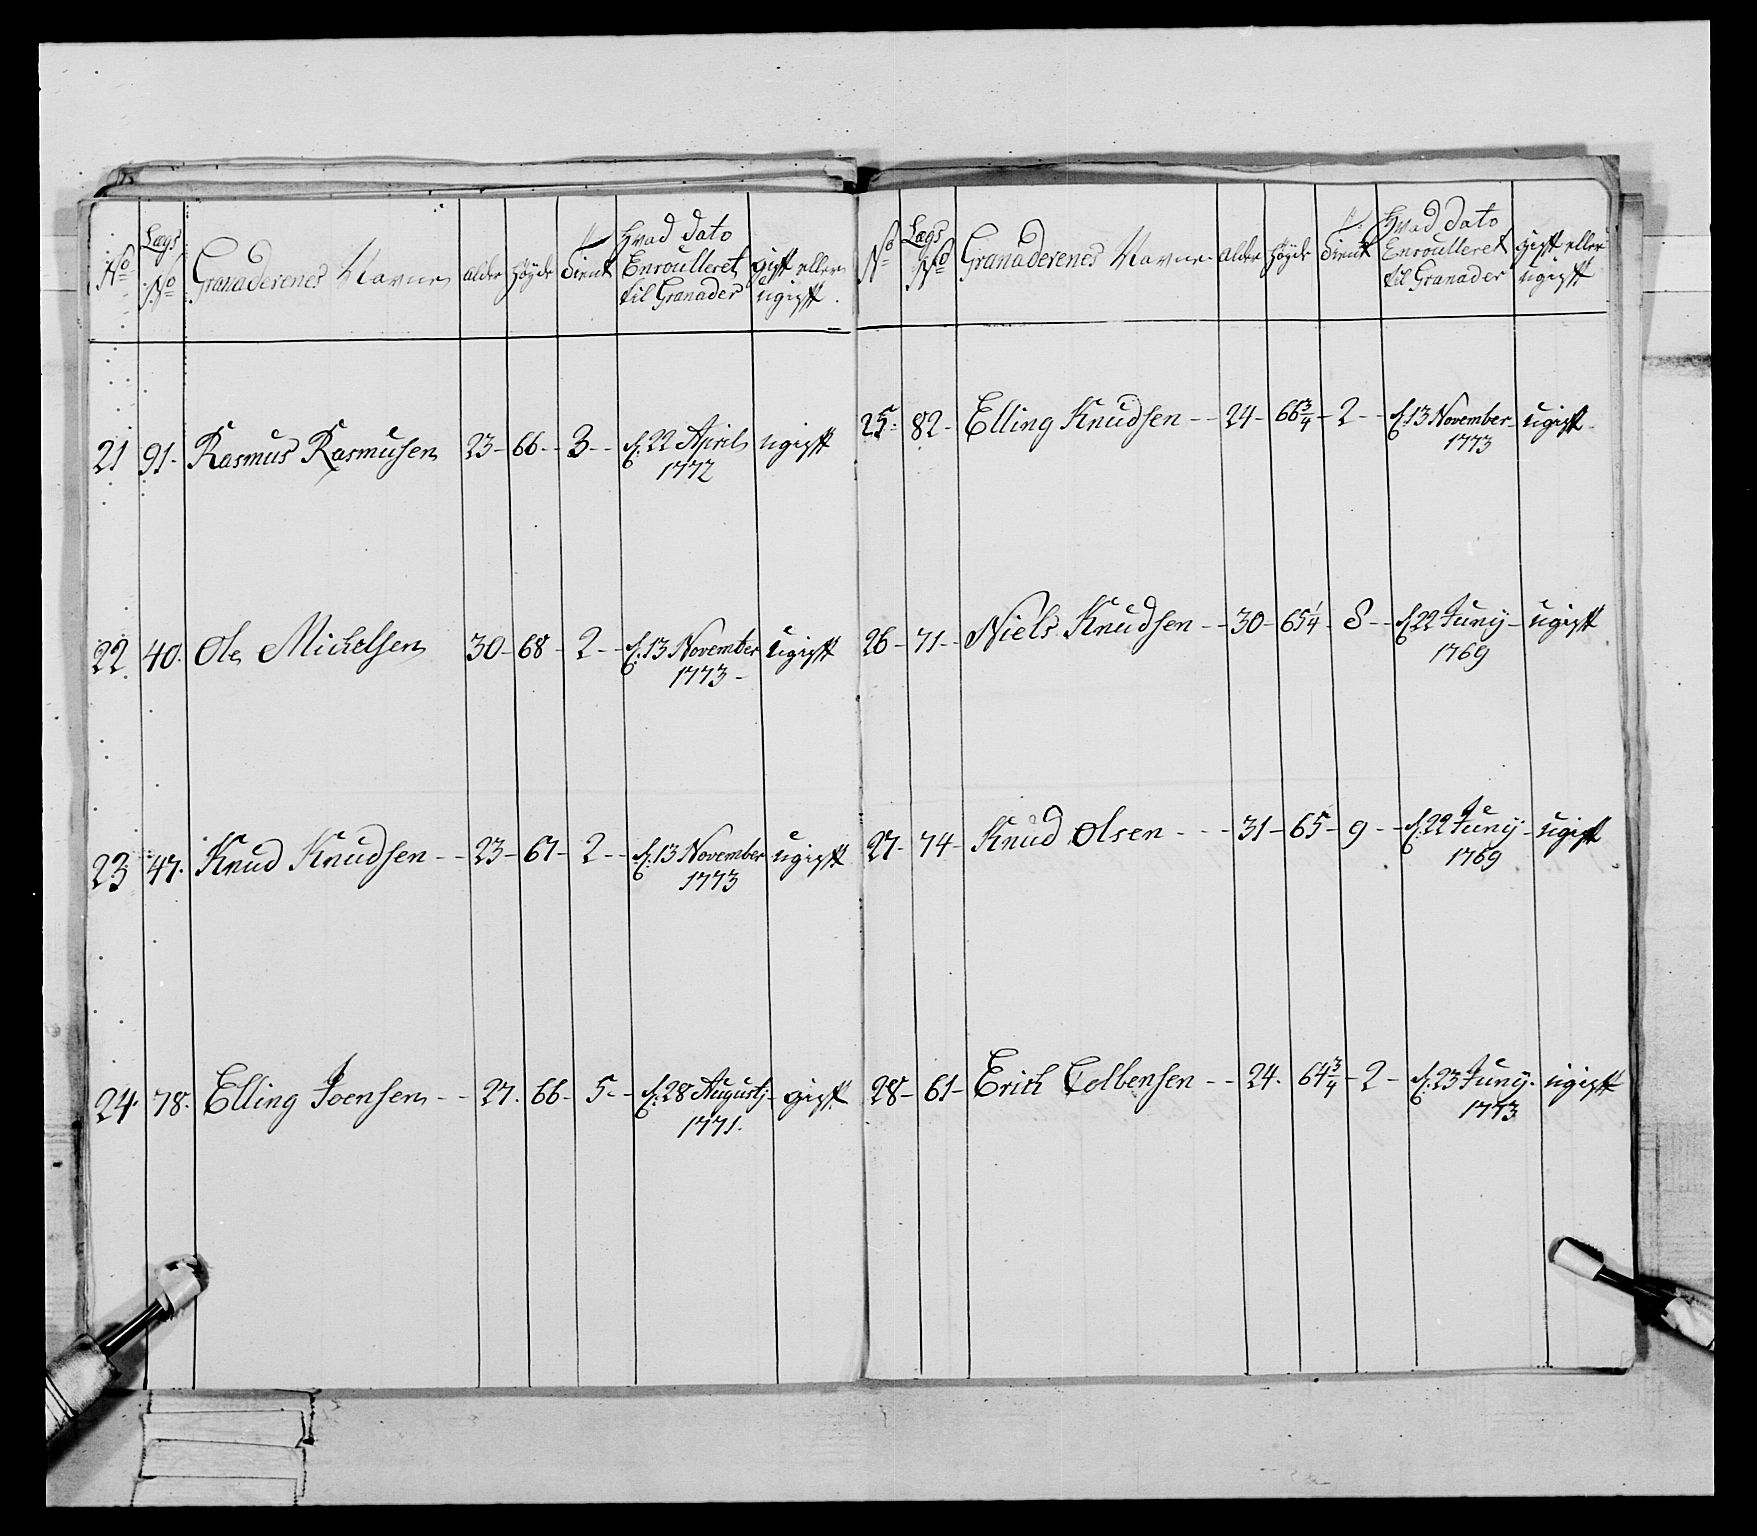 No Lægs No Granaderenes Navne alder höyde Tient Hvad dato Enroulleret til Granader gift eller ugift
21 91- Rasmus Rasmusen 23- 66-- 3-- d: 22 April 1772 ugift
22. 40. Ole Michelsen 30- 68- 2-- d: 13 November 1773- ugift
23 47. Knud Knudsen-- 23- 67- 2-- d: 13 November 1773 ugift
24. 78. Elling Joensen-- 27. 66- 5-- d: 28 Augustj 1771. gift.
No Lægs No Granaderenes Navne- alder höyde Tient Hvad dato Enroulleret til Granader gift eller ugift
25. 82- Elling Knudsen-- 24- 66 3/4- 2-- d: 13 November 1773 ugift-
26- 71-- Niels Knudsen-- 30- 65 1/4- 8-- d: 22 Juny- 1769 ugift
27- 74- Knud Olsen--- 31- 65- 9-- d: 22 Juny- 1769 ugift
28- 61- Erich Colbensen-- 24. 64 3/4- 2- d: 23 Juny. 1773 ugift